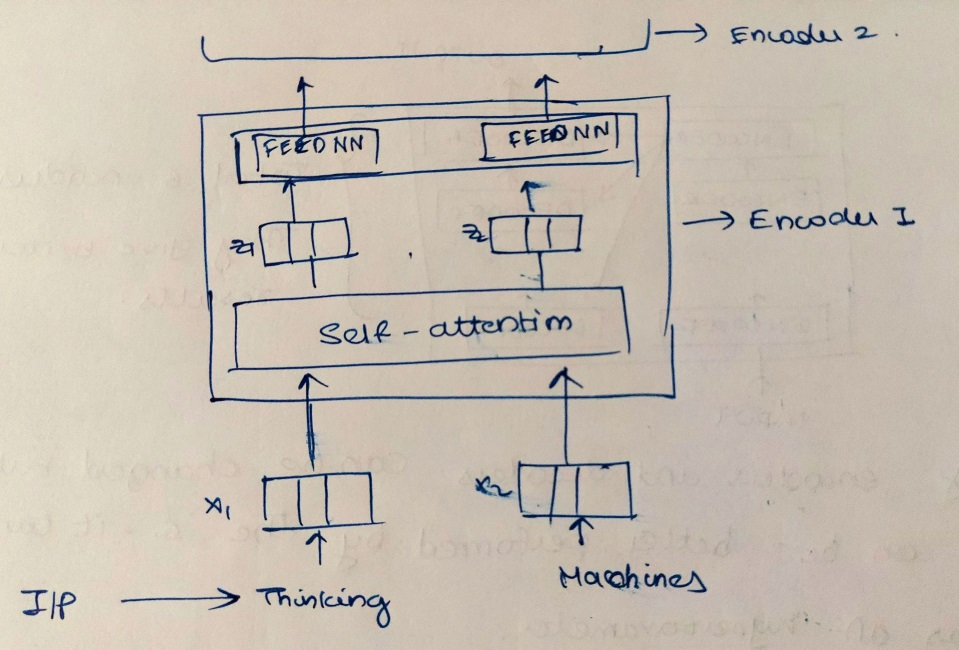 → Encoder 2.
FEEDNN FEEDNN
z1 z2
→ Encoder I
Self-attention
x1 x2
I/P → Thinking Machines